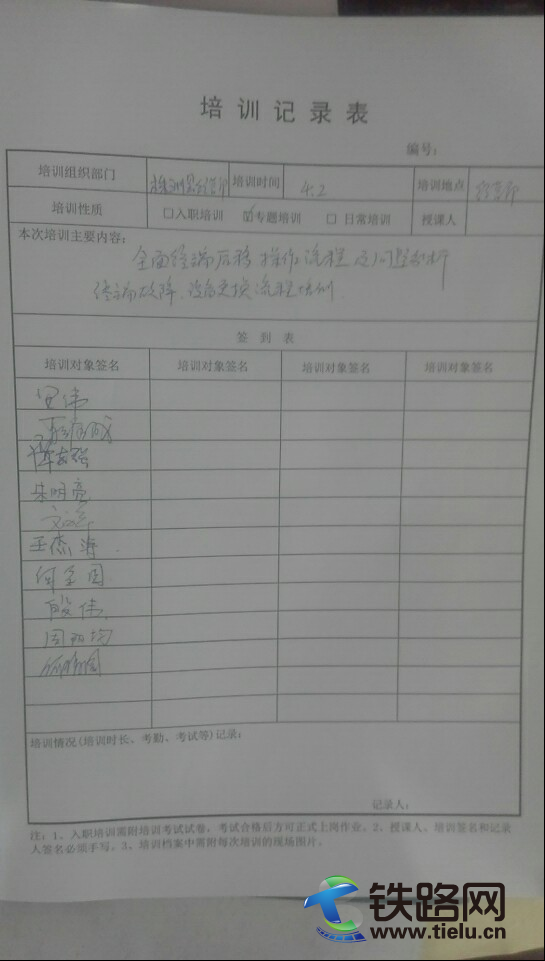 培训记录表
编号:
培训组织部门 培训时间 4.2 培训地点
培训性质 □入职培训 ☑专题培训 □ 日常培训 授课人
本次培训主要内容:
全面终端后移操作流程
终端故障、设备更换流程培训
签 到 表
培训对象签名 培训对象签名 培训对象签名 培训对象签名
伟
朱明亮
王杰海
何全国
殷伟
周
培训情况(培训时长、考勤、考试等)记录:
记录人:
注: 1、入职培训需附培训考试试卷, 考试合格后方可正式上岗作业。2、授课人、培训签名和记录
人签名必须手写。3、培训档案中需附每次培训的现场图片。
铁路网
www.tielu.cn